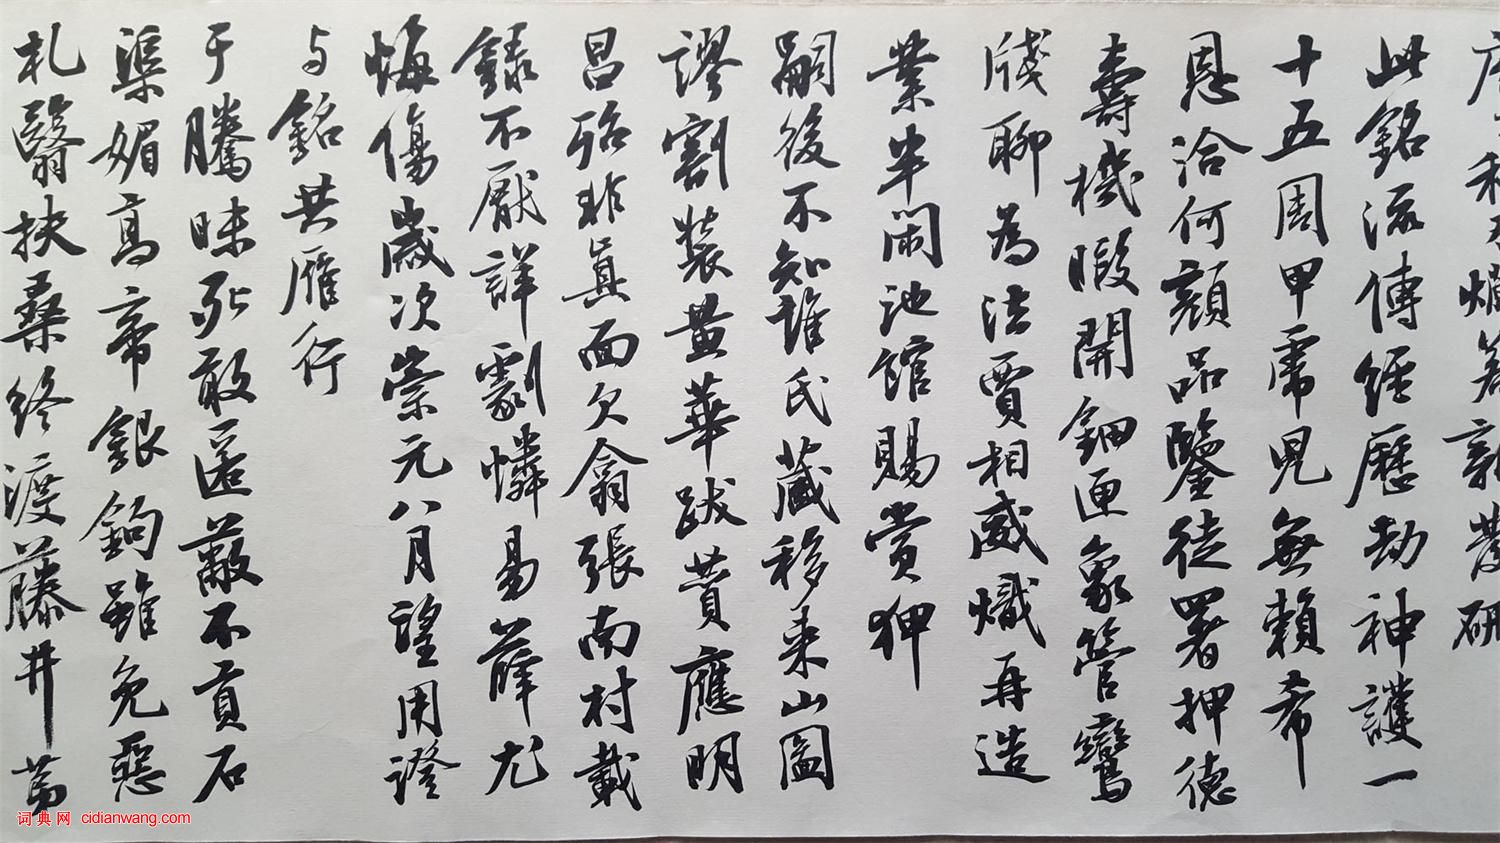 此銘流傳經歷劫神護一
十五周甲虎兕無賴希
恩洽何顏品鑒徒署押德
壽機暇開鈿匣象管鸞
牋聊為法賈相威熾再造
業半閑池館賜賞狎
嗣後不知誰氏藏移来山圖
謬割裝畫華跋蕢應明
昌珞非真面欠翕張南村載
錄不厭詳劙憐易薛尤
悔傷歲次崇元八月望用證
与銘共雁行
于騰昧死敢匿蔽不貢石
渠媚高帝銀鉤雖免惡
札翳扶桑終渡藤井
词典网 cidianwang.com